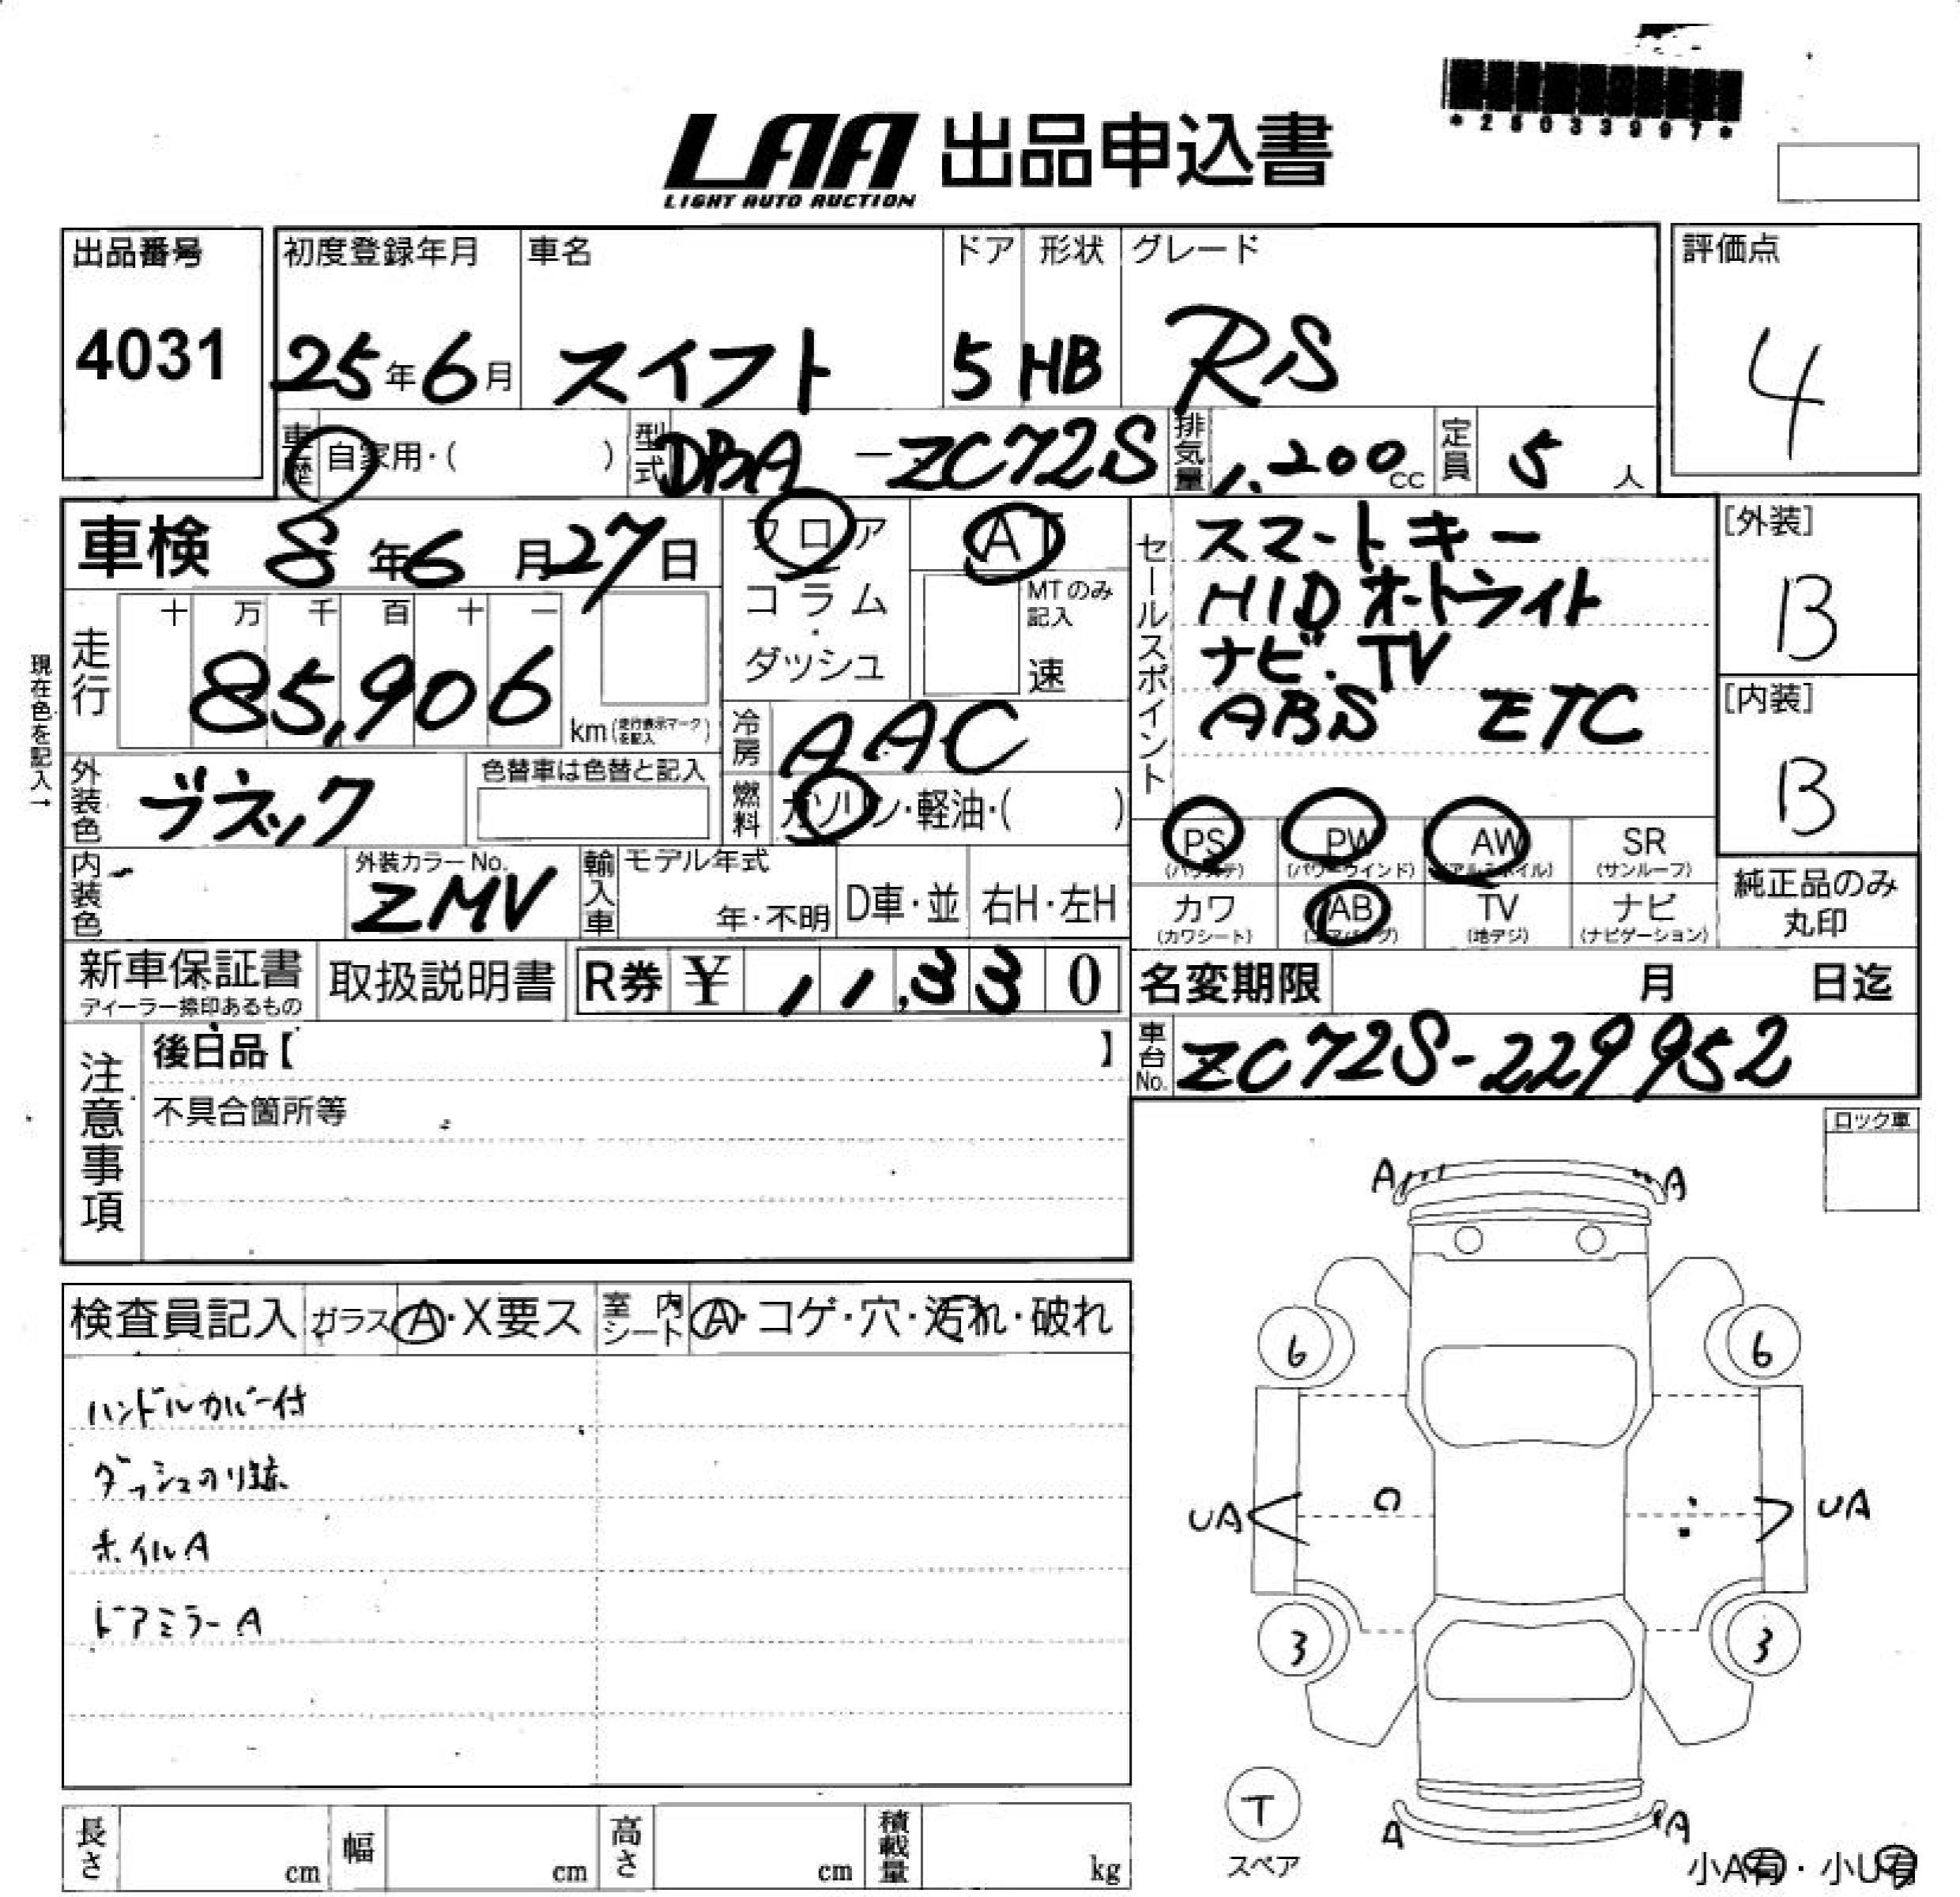 *25033997*
LAA 出品申込書
LIGHT AUTO AUCTION
出品番号
4031
初度登録年月
25年6月
車名
スイフト
ドア
5
形状
HB
グレード
RS
評価点
4
車歴
自家用・( )
型式
DBA-ZC72S
排気量
1,200cc
定員
5人
車検 8年6月27日
フロア
コラム
・
ダッシュ
AT
MTのみ記入
速
セールスポイント
スマートキー
HIDオートライト
ナビ・TV
ABS ETC
[外装]
B
[内装]
B
現在色を記入→
走行
十 万 千 百 十 一
85,906
km(走行表示マークを記入)
冷房
AAC
外装色
ブラック
色替車は色替と記入
燃料
ガソリン・軽油・( )
PS
(パワステ)
PW
(パワーウインド)
AW
(アルミホイル)
SR
(サンルーフ)
カワ
(カワシート)
AB
(エアバッグ)
TV
(地デジ)
ナビ
(ナビゲーション)
純正品のみ
丸印
内装色
外装カラーNo.
ZMV
輸入車
モデル年式
年・不明
D車・並
右H・左H
新車保証書
ディーラー捺印あるもの
取扱説明書
R券 ¥ 11,330
名変期限 月 日迄
車台No.
ZC72S-229952
注意事項
後日品【 】
不具合箇所等
ロック車
検査員記入
ガラス
A・X要ス
室内シート
A・コゲ・穴・汚れ・破れ
ハンドルカバー付
ダッシュのり跡
ホイルA
ドアミラーA
A A
6 6
UA UA
3 3
T
スペア
A A
小A有・小U有
長さ cm
幅 cm
高さ cm
積載量 kg